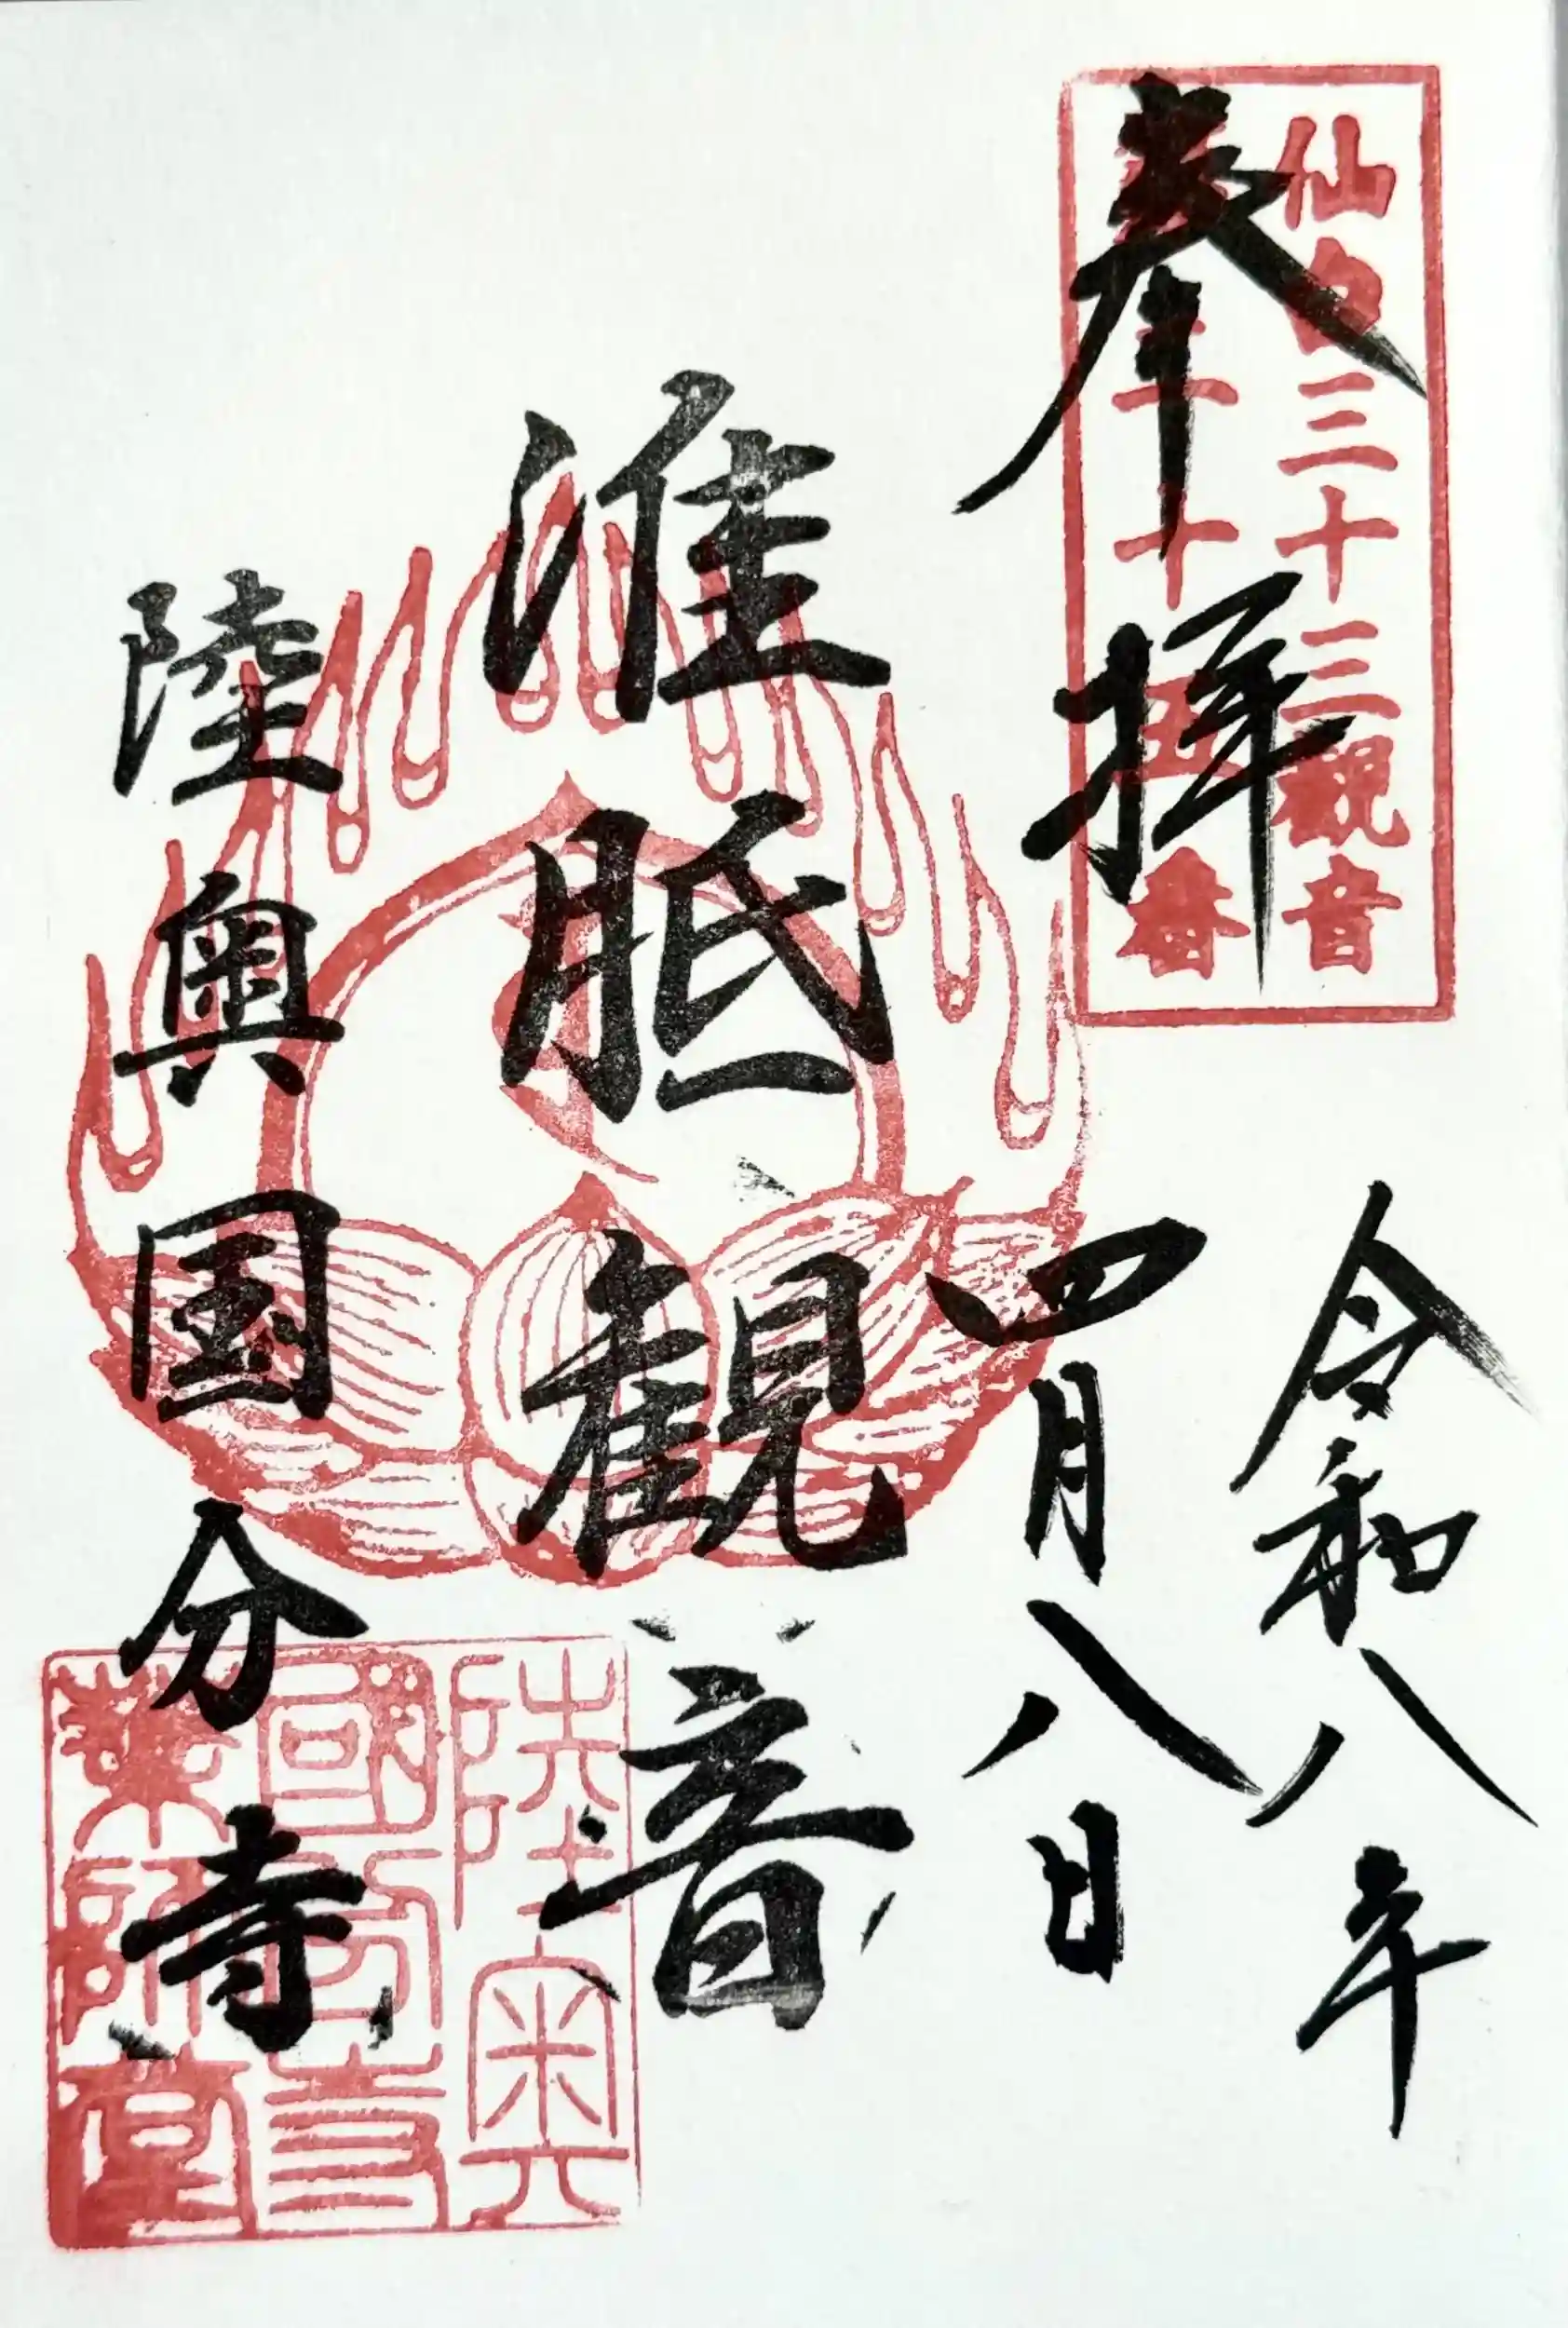 仙台三十三観音
第二十五番
奉拝
令和八年
四月八日
准胝観音
陸奥国分寺
陸奥
國分寺
薬師堂